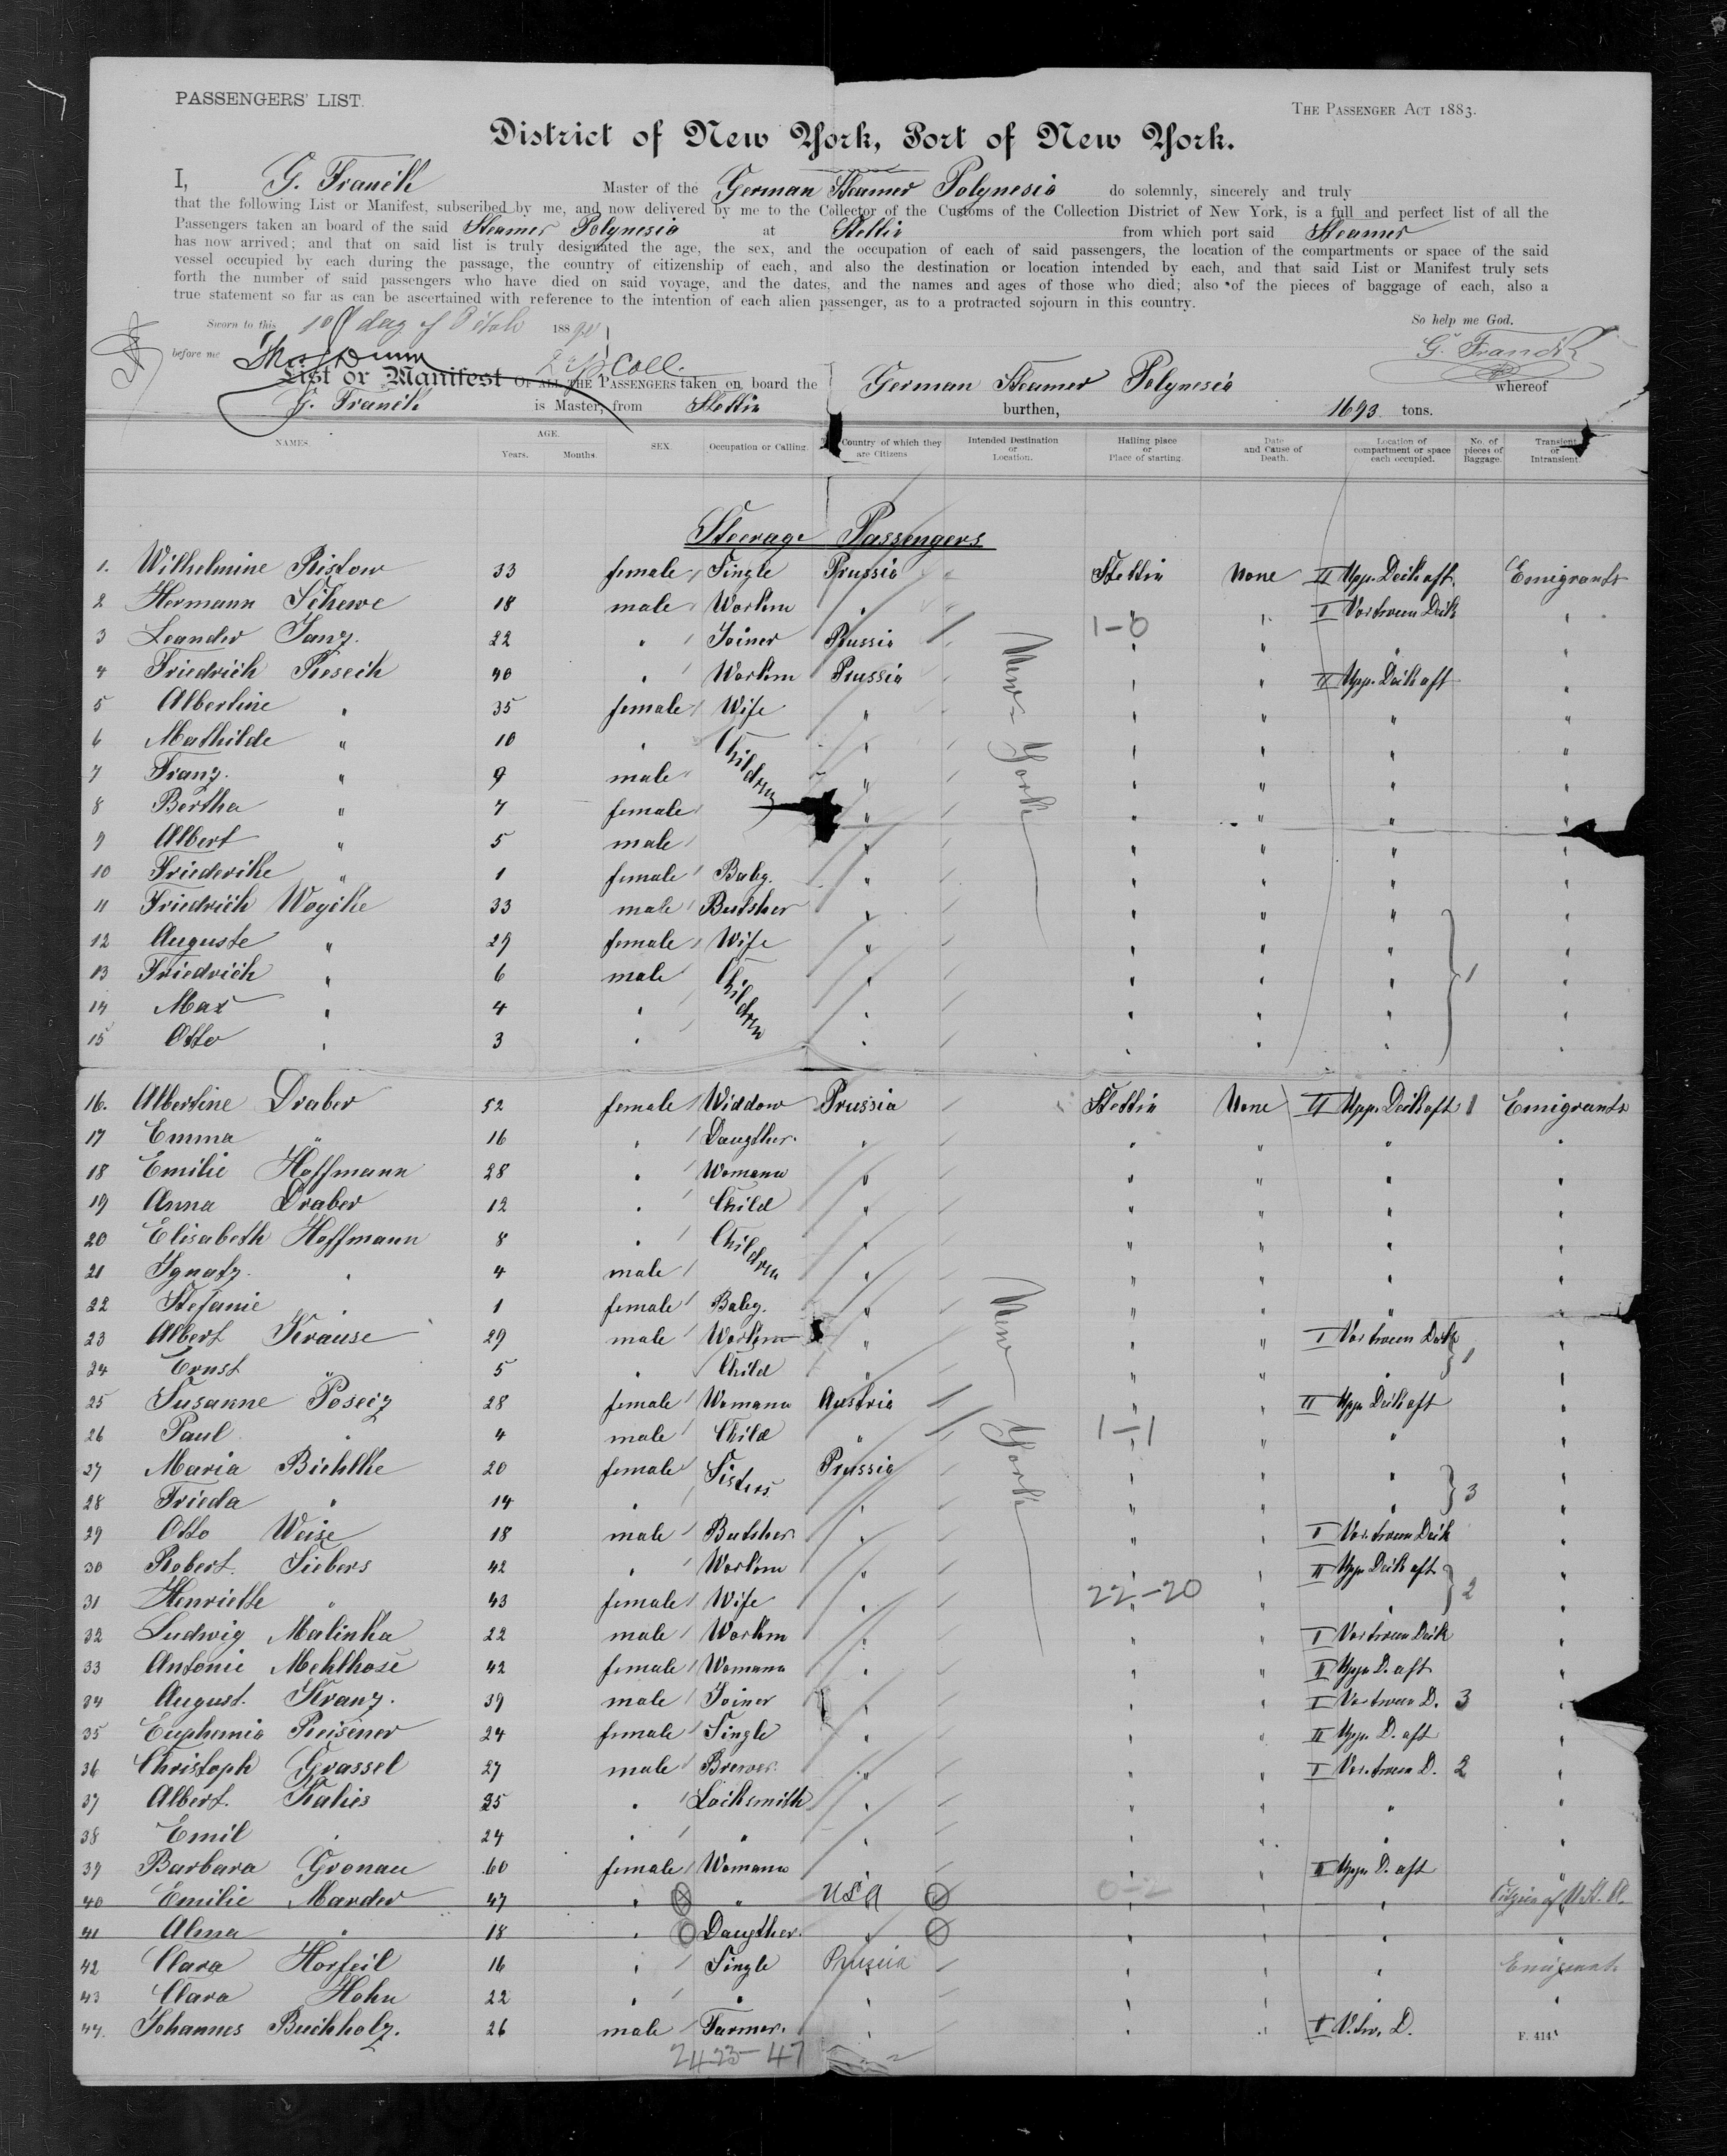 PASSENGERS' LIST.
THE PASSENGER ACT 1883.
District of New York, Port of New York.
I, G. Franck Master of the German Steamer Polynesia do solemnly, sincerely and truly
that the following List or Manifest, subscribed by me, and now delivered by me to the Collector of the Customs of the Collection District of New York, is a full and perfect list of all the
Passengers taken an board of the said Steamer Polynesia at Stettin from which port said Steamer
has now arrived; and that on said list is truly designated the age, the sex, and the occupation of each of said passengers, the location of the compartments or space of the said
vessel occupied by each during the passage, the country of citizenship of each, and also the destination or location intended by each, and that said List or Manifest truly sets
forth the number of said passengers who have died on said voyage, and the dates, and the names and ages of those who died; also of the pieces of baggage of each, also a
true statement so far as can be ascertained with reference to the intention of each alien passenger, as to a protracted sojourn in this country.
Sworn to this day of 188
So help me God.
before me Coll. G. Franck
List or Manifest OF ALL THE PASSENGERS taken on board the German Steamer Polynesia whereof
G. Franck is Master, from Stettin burthen, 1693 tons.
NAMES. AGE. Years. Months. SEX. Occupation or Calling. Country of which they are Citizens Intended Destination or Location. Hailing place or Place of starting. Date and Cause of Death. Location of compartment or space each occupied. No. of pieces of Baggage. Transient or Intransient.
Steerage Passengers
1. Wilhelmine Ristow 33 female Single Prussia Stettin None II Upp. Deck aft. Emigrants
2 Hermann Schewe 18 male Workm " " " I Vortween Deck "
3 Leander Janz. 22 " Joiner Prussia 1-0 " " " "
4 Friedrich Reseck 40 " Workm Prussia " " II Upp. Deck aft "
5 Albertine " 35 female Wife " " " " "
6 Mathilde " 10 " Children " " " " "
7 Franz. " 9 male " " " " "
8 Bertha " 7 female " " " " "
9 Albert " 5 male " " " "
10 Friederike " 1 female Baby. " " " " "
11 Friedrich Woycke 33 male Butsher " " " " "
12 Auguste " 29 female Wife " " " " "
13 Friedrich " 6 male Children " " " " 1 "
14 Max " 4 " " " " " "
15 Otto " 3 " " " " " "
New York
16. Albertine Draber 52 female Widdow Prussia Stettin None II Upp. Deck aft 1 Emigrants
17 Emma " 16 " Daugther. " " " " "
18 Emilie Hoffmann 28 " Womann " " " " "
19 Anna Draber 12 " Child " " " " "
20 Elisabeth Hoffmann 8 " Children " " " " "
21 Ignatz. " 4 male " " " " "
22 Stefanie " 1 female Baby. " " " " "
23 Albert Krause 29 male Workm " " " I Vortween Deck 1 "
24 Ernst " 5 " Child " " " " "
25 Susanne Poseiz 28 female Womann Austria " " II Upp. Deck aft "
26 Paul " 4 male Child " 1-1 " " "
27 Maria Bichlke 20 female Sisters Prussia " " " 3 "
28 Frieda " 14 " " " " " "
29 Otto Weise 18 male Butsher " " " I Vortween Deck "
30 Robert. Siebers 42 " Workm " " " II Upp. Deck aft 2 "
31 Henriette " 43 female Wife " 22-20 " " "
32 Ludwig Malinka 22 male Workm " " " I Vortween Deck "
33 Antonie Mehlhose 42 female Womann " " " II Upp. D. aft "
34 August. Kranz. 39 male Joiner " " " I Vortween D. 3 "
35 Euphemia Reisener 24 female Single " " " II Upp. D. aft "
36 Christoph Grassel 27 male Brewer " " " I Vortween D. 2 "
37 Albert. Kalies 35 " Locksmith " " " " "
38 Emil " 24 " " " " " " "
39 Barbara Gronau 60 female Womann " " " II Upp. D. aft "
40 Emilie Marder 47 " " USA 0-2 " " Citizen of U.S.A.
41 Alma " 18 " Daugther. " " " "
42 Clara Horfeil 16 " Single Prussia " " " Emigrant
43 Clara Hohn 22 " " " " " " "
44. Johannes Buchholz. 26 male Farmer. " " " I V.tw. D.
New York
F. 414
24 23-47